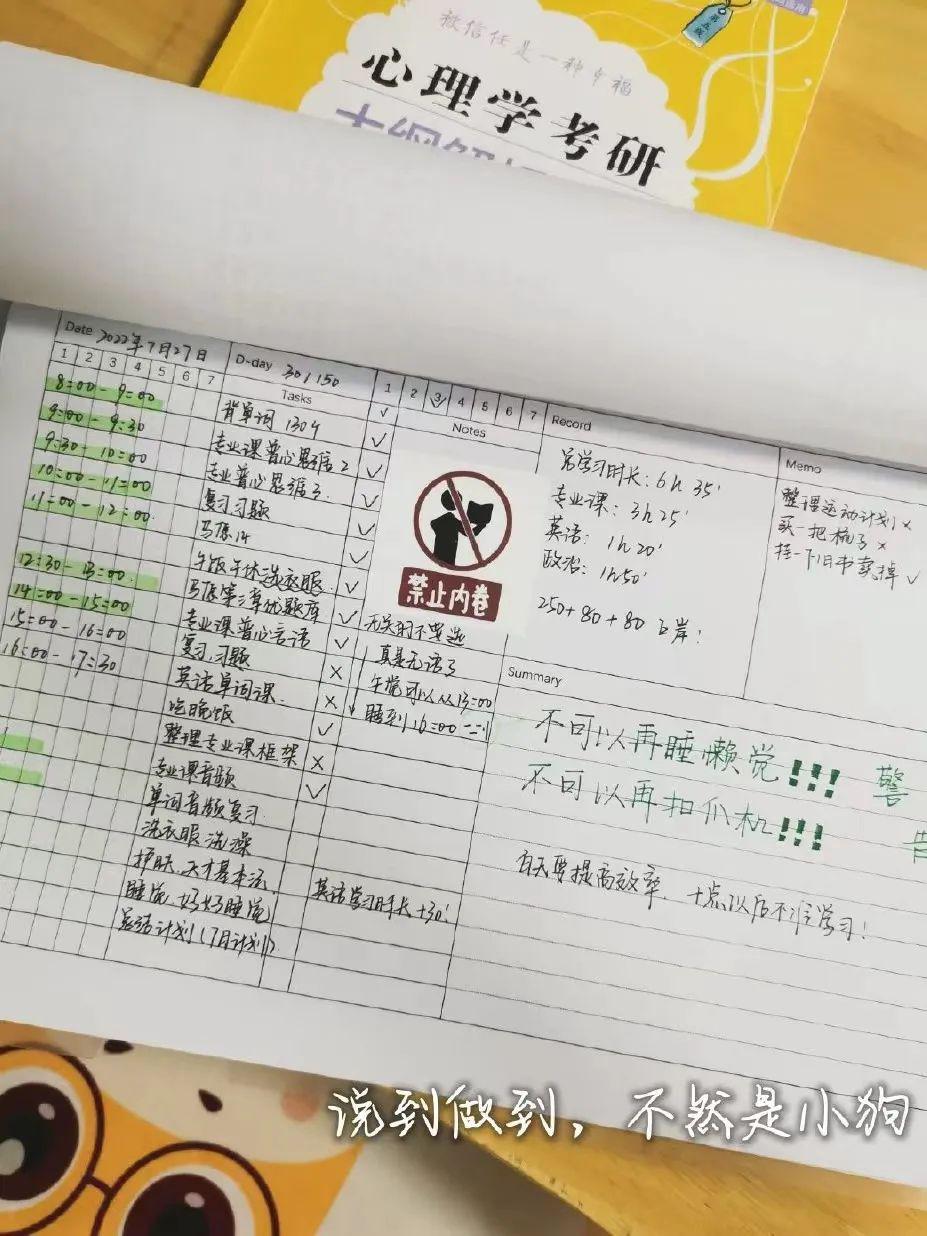 被信任是一种幸福
心理学考研
Date 2022年7月27日
D-day 30/150
1 2 3 4 5 6 7
Tasks
1 2 3 4 5 6 7
Notes
Record
Memo
8:00-9:00
背单词 130个
9:00-9:30
专业课普心思语2
9:30-10:00
专业普心思语3
10:00-11:00
复习习题
11:00-12:00
马原
12:30-13:00
午饭午休洗衣服
14:00-15:00
马原第3章优题库
15:00-16:00
专业课普心言语
16:00-17:30
复习、习题
英语单词课
吃晚饭
整理专业课框架
专业课音频
单词音频复习
洗衣服洗澡
护肤、天才基本法
睡觉 好好睡觉
总结计划(7月计划)
禁止内卷
无关的不要选
真是无语了
午觉可以从13:00
睡到16:00
英语学习时长+30'
总学习时长:6h 35'
专业课:3h 25'
英语:1h 20'
政治:1h 50'
250+80+80上岸!
整理运动计划×
买一把梳子×
挂一下旧书卖掉✓
Summary
不可以再睡懒觉!!! 警
不可以再扣爪机!!! 告
白天要提高效率,十点以后不准学习!
说到做到,不然是小狗